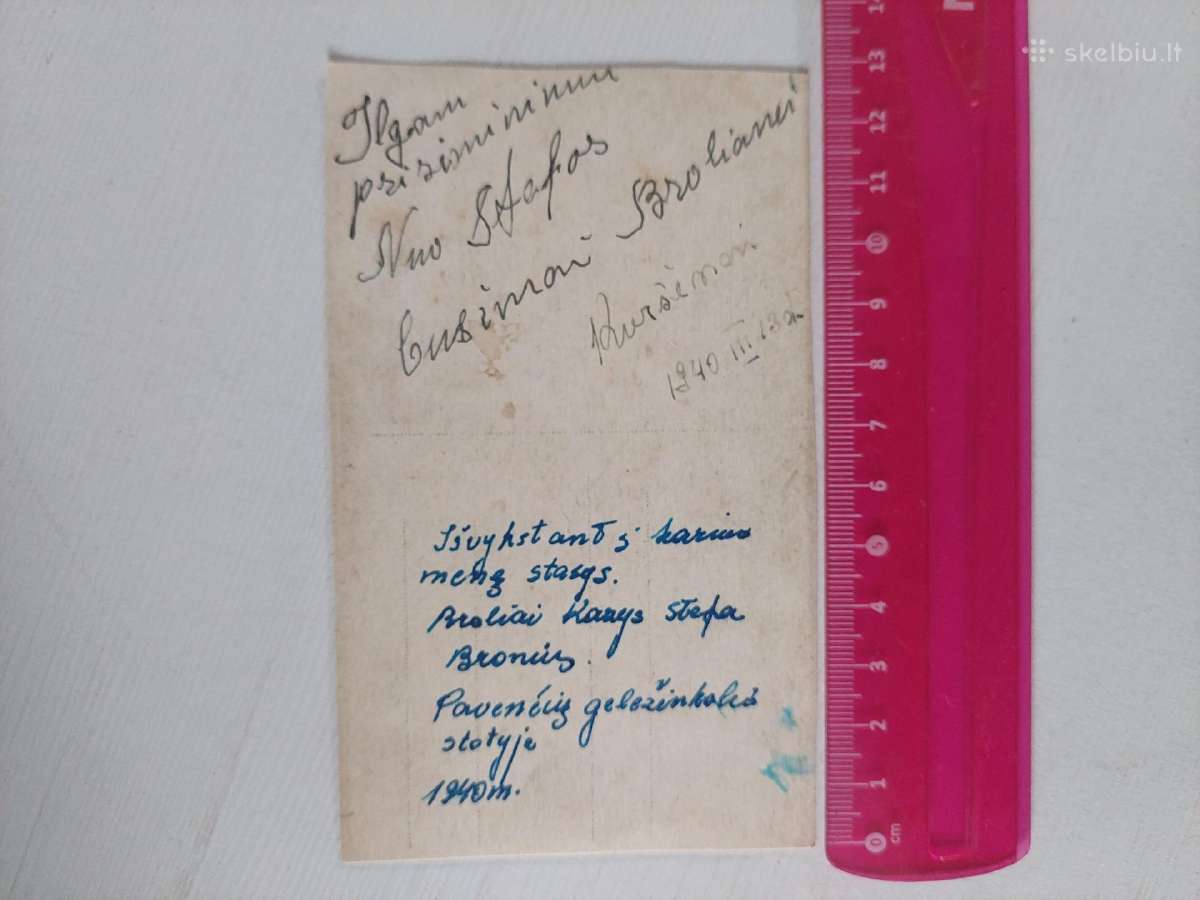 Ilgam
prisiminimui
Nuo Stafos
busimai Brolianei
Kuršėnai
1940 III 13 d.
Išvykstant į
meną stasys.
Broliai Kazys stefa
Bronius.
Pavenčių geležinkolio
stotyje
1940 m.
skelbiu.lt
14
13
12
11
10
9
8
7
6
5
4
3
2
1
0 cm